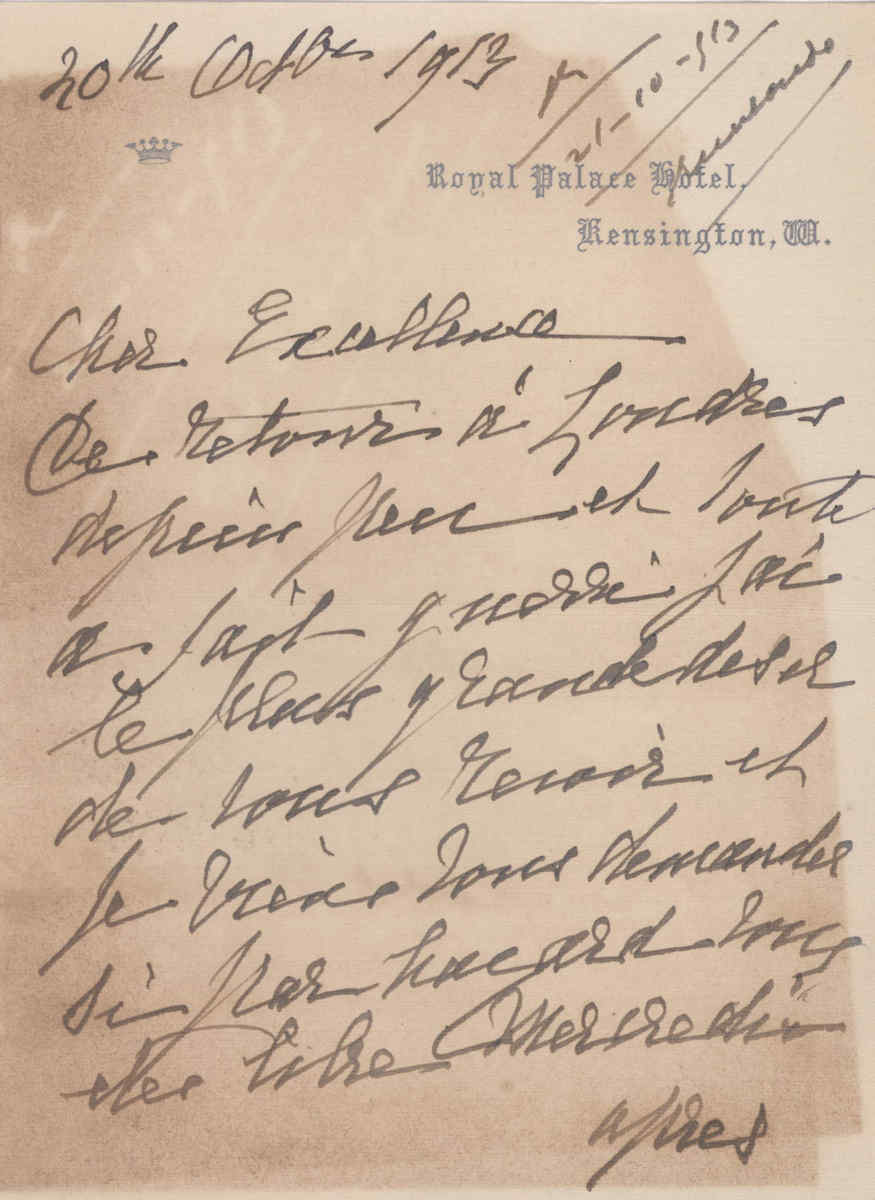 20th Octber 1913
21-10-913
Royal Palace Hotel,
Kensington, W.
Cher Excellence
De retour à Londres
depuis peu et toute
a fait guerri j'ai
le plus grande desir
de vous revoir et
je viens vous demander
si par hacard vous
etes libre Mercredi
apres